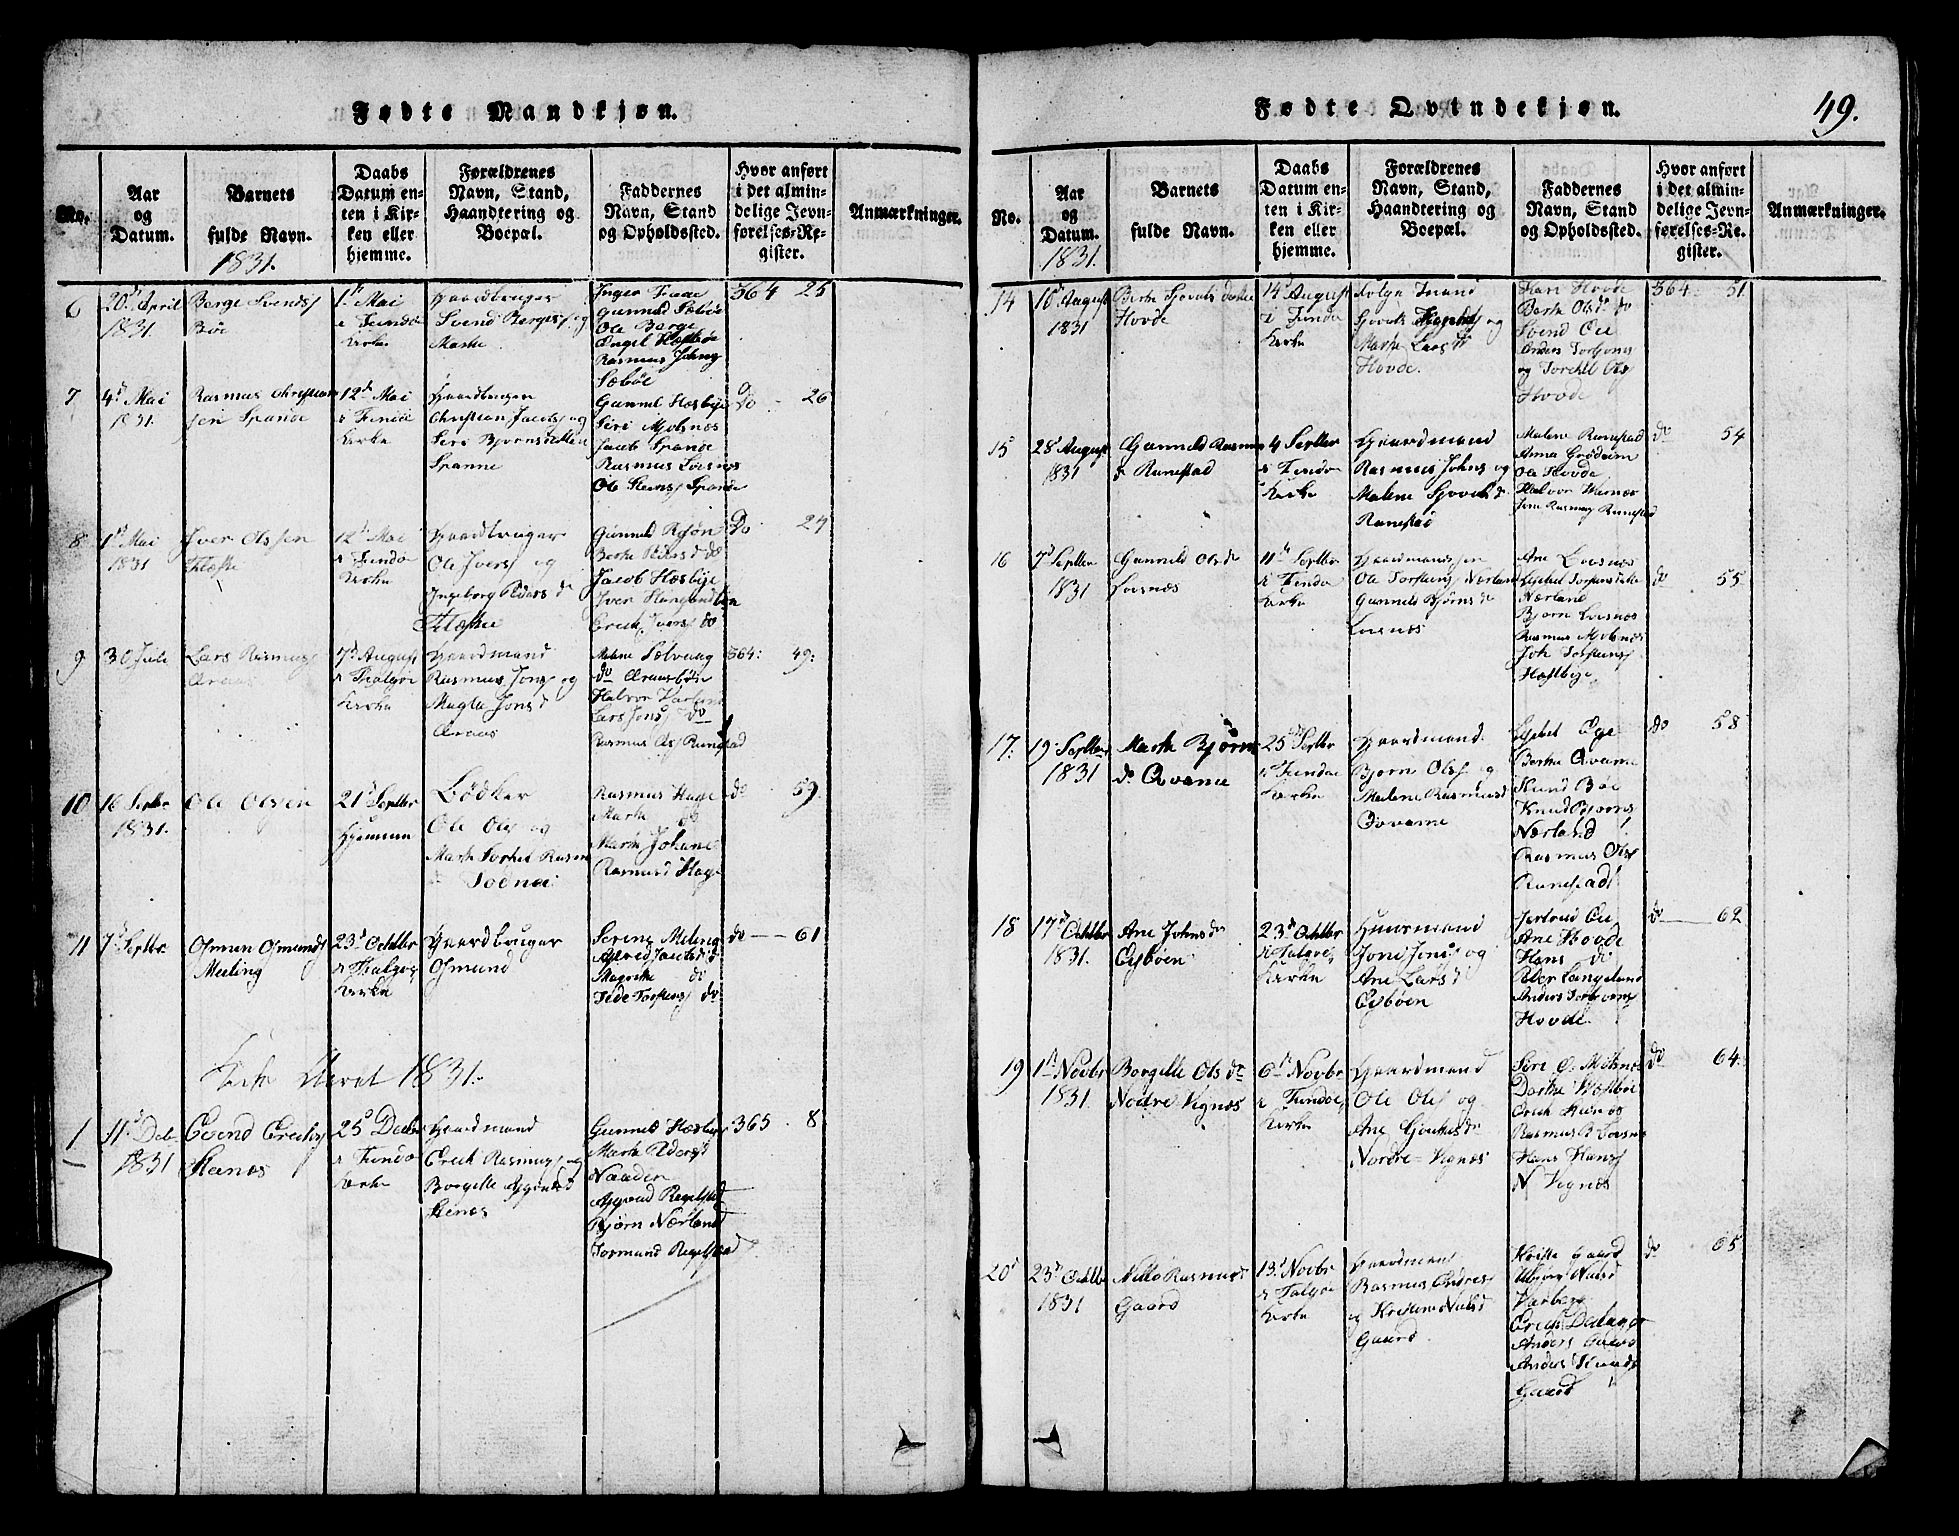 Fødte Mandkjøn.
No.
Aar
og
Datum.
Barnets
fulde Navn.
1831.
Daabs
Datum en-
ten i Kir-
ken eller
hjemme.
Forældrenes
Navn, Stand,
Haandtering og
Boepæl.
Faddernes
Navn, Stand
og Opholdssted.
Hvor anført
i det almin-
delige Jevn-
førelses-Re-
gister.
Anmærkninger.
6
20d April
1831.
Berge Svends
Bøe
1st Mai
i Findø
Kirke
Gaardbruger
Svend Berges og
Marthe
Gunnild Sæbøe
Ole Berge
Engel Hæstbøe
Rasmus Johns
Sæbøe
364 25
7
4d Mai
1831.
Rasmus Christian
sen Spande
12d Mai
i Findø
Kirke
Gaardbruger
Christian Jacobs og
Siri Bjørnsdatter
Spanne
Gunnild Hæsbye
Siri Mosnæs
Jacob Spande
Rasmus Losnæs
Ole Steens Spande
Do 26
8
1st Mai
1831
Iver Olssen
Flæske
12d Mai
i Findø
Kirke
Gaardbruger
Ole Ivers og
Ingeborg Peders d
Flæske
Berthe Peders d do
Jacob Hæsbye
Erich Ivers do
Do 24
9
30 Juli
Lars Rasmus
Araas
7d August
i Talgøe
Kirke
Gaardmand
Rasmus Jons og
Magla Jons d
Araas
Malene Sælvaag
do
Halvor
Lars Jons do
Rasmus Ols Runestad
364: 49:
10
16 Septbr
1831.
Ole Olsen
21d Septbr
Hjemme
Bødker
Ole Ols og
Marthe Torkel Rasm
Todnæ
Rasmus Hage
Marthe do
Marthe Johane
Rasmusd Hage
do 59.
11
7d Septbr
Osmun Osmunds
Meling
23d Octbr
i Talgøe
Kirke
Gaardbruger
Osmund
Serine Meling
Magrethe do
do 61
Kirke Aaret 1831.
1
11d Deb
1831
Svend Erichs
Steenæs
25d Decbr
i Findø
Kirke
Gaardmand
Erich Rasmus og
Borgille
Steenæs
Gunnild Hæsbye
Marthe Pedersd
Naaden
Asgoud Regelstad
Bjørn Nærland
Tormund Regelstad
365 8
Fødte Qvindekjøn.
49.
No.
Aar
og
Datum.
1831.
Barnets
fulde Navn.
Daabs
Datum en-
ten i Kir-
ken eller
hjemme.
Forældrenes
Navn, Stand,
Haandtering og
Boepæl.
Faddernes
Navn, Stand
og Opholdssted.
Hvor anført
i det almin-
delige Jevn-
førelses-Re-
gister.
Anmærkninger.
14
10d August
1831
Berthe
Hovde
14d August
i Findø
Kirke
Marthe Lars d
Hovde.
Kari Hovde
Berthe Olsd do
Svend Oie
Anders Torbjørns
og Torkel Ols
Hovde
364 51.
15
28d August
1831
Gunnild Rasmus
d Runestad
4 Septbr
i Findø
Kirke
Gaardmand
Rasmus Johns og
Malene
Runestad
Malene Runestad
Anna Grødeim
Ole Hovde
Halvor
Jone Rasmus Runestad
do 54
16
7d Septbr
1831
Gunnild Ols d
Losnæs
11d Septbr
i Findøe
Kirke
Gaardmandssøn
Ole Torstens Nærland
Gunnild Bjørns d
Losnæs
Ane Losnæs
Nærland
Bjørn Losnæs
Rasmus Mosnæs
Joh Torstens
Hæstbye
do 55
17.
19 Septbr
1831
Marthe Bjørns
d Qvame
25d Septbr
i Findøe
Kirke
Gaardmand
Bjørn Ols og
Malene Rasmusd
Qvame
Berthe Qvame
Knud Bjørns
Nærland
Rasmus Ols
Runestad
do 58
18
17d Octbr
1831.
Ane Johns d
Eysbøen
23d Octbr
i Talgøe
Kirke
Huusmand
Jone Jons og
Ane Lars d
Eysbøen
Jertrud Oie
Ane Hovde
Hans do
Peter Langeland
Anders Torbjørns
Hovde.
do 62
19
1st Novbr
1831.
Borgille Ols d
Nordre Vignæs
6d Novbr
i Findøe
Kirke
Gaardmand
Ole Ols og
Ane
Nordre-Vignæs
Siri O. Mosnæs
Dorthe Hæstbøe
Erich Steenæs
Rasmus R Losnæs
Hans Hans
N Vignæs
do 64.
20d
23d Octbr
1831
Nille Rasmusd
Gaard
13d Novbr
i Talgøe
Kirke
Gaardmand
Rasmus Endres
og Kristine Nilsd
Gaard.
Varberg
Anders Gaard
Anders Knuds
Gaard
do 65